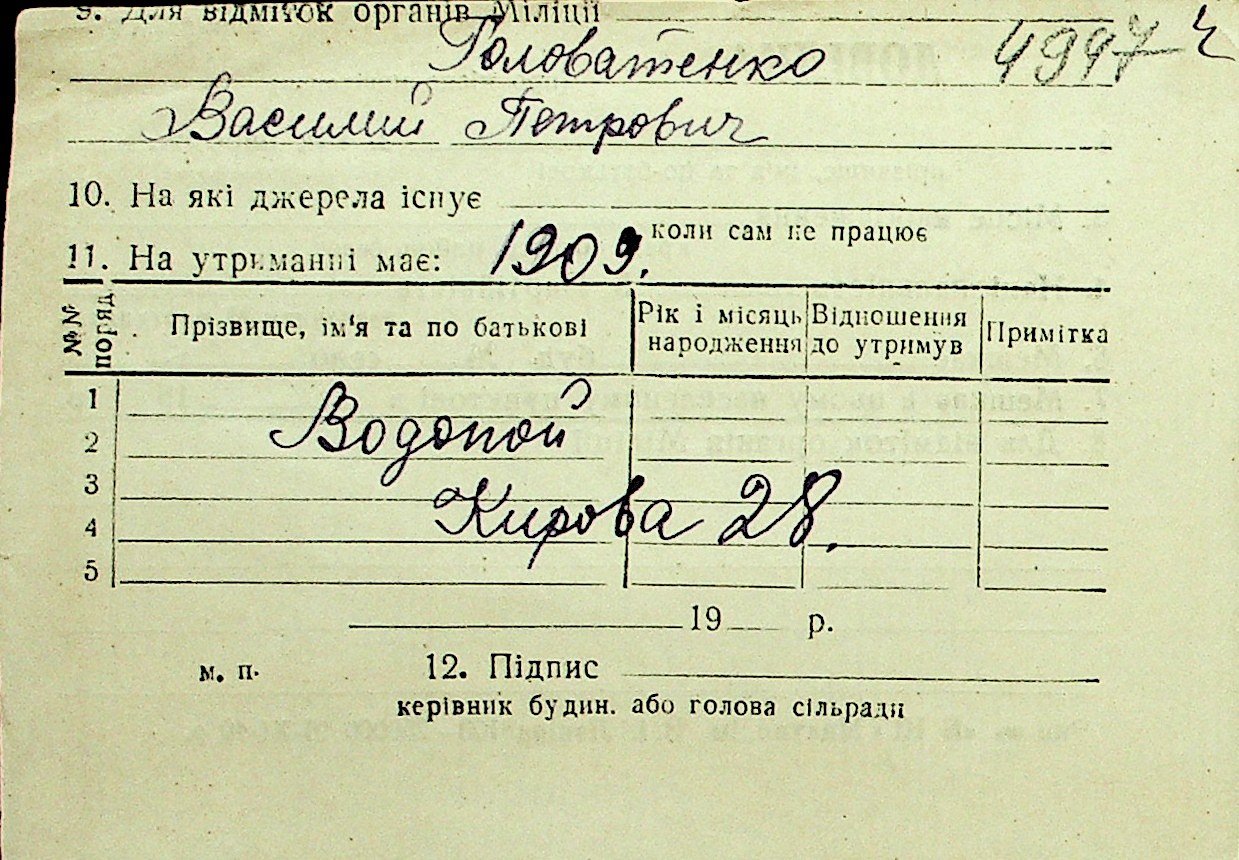 9. Для відміток органів Міліції
Головатенко 4997 ч
Василий Петрович
10. На які джерела існує
коли сам не працює
11. На утриманні має: 1909.
№№ поряд. Прізвище, ім'я та по батькові Рік і місяць народження Відношення до утримув Примітка
1
2 Водопой
3
4 Кирова 28.
5
19 р.
м. п. 12. Підпис
керівник будин. або голова сільради